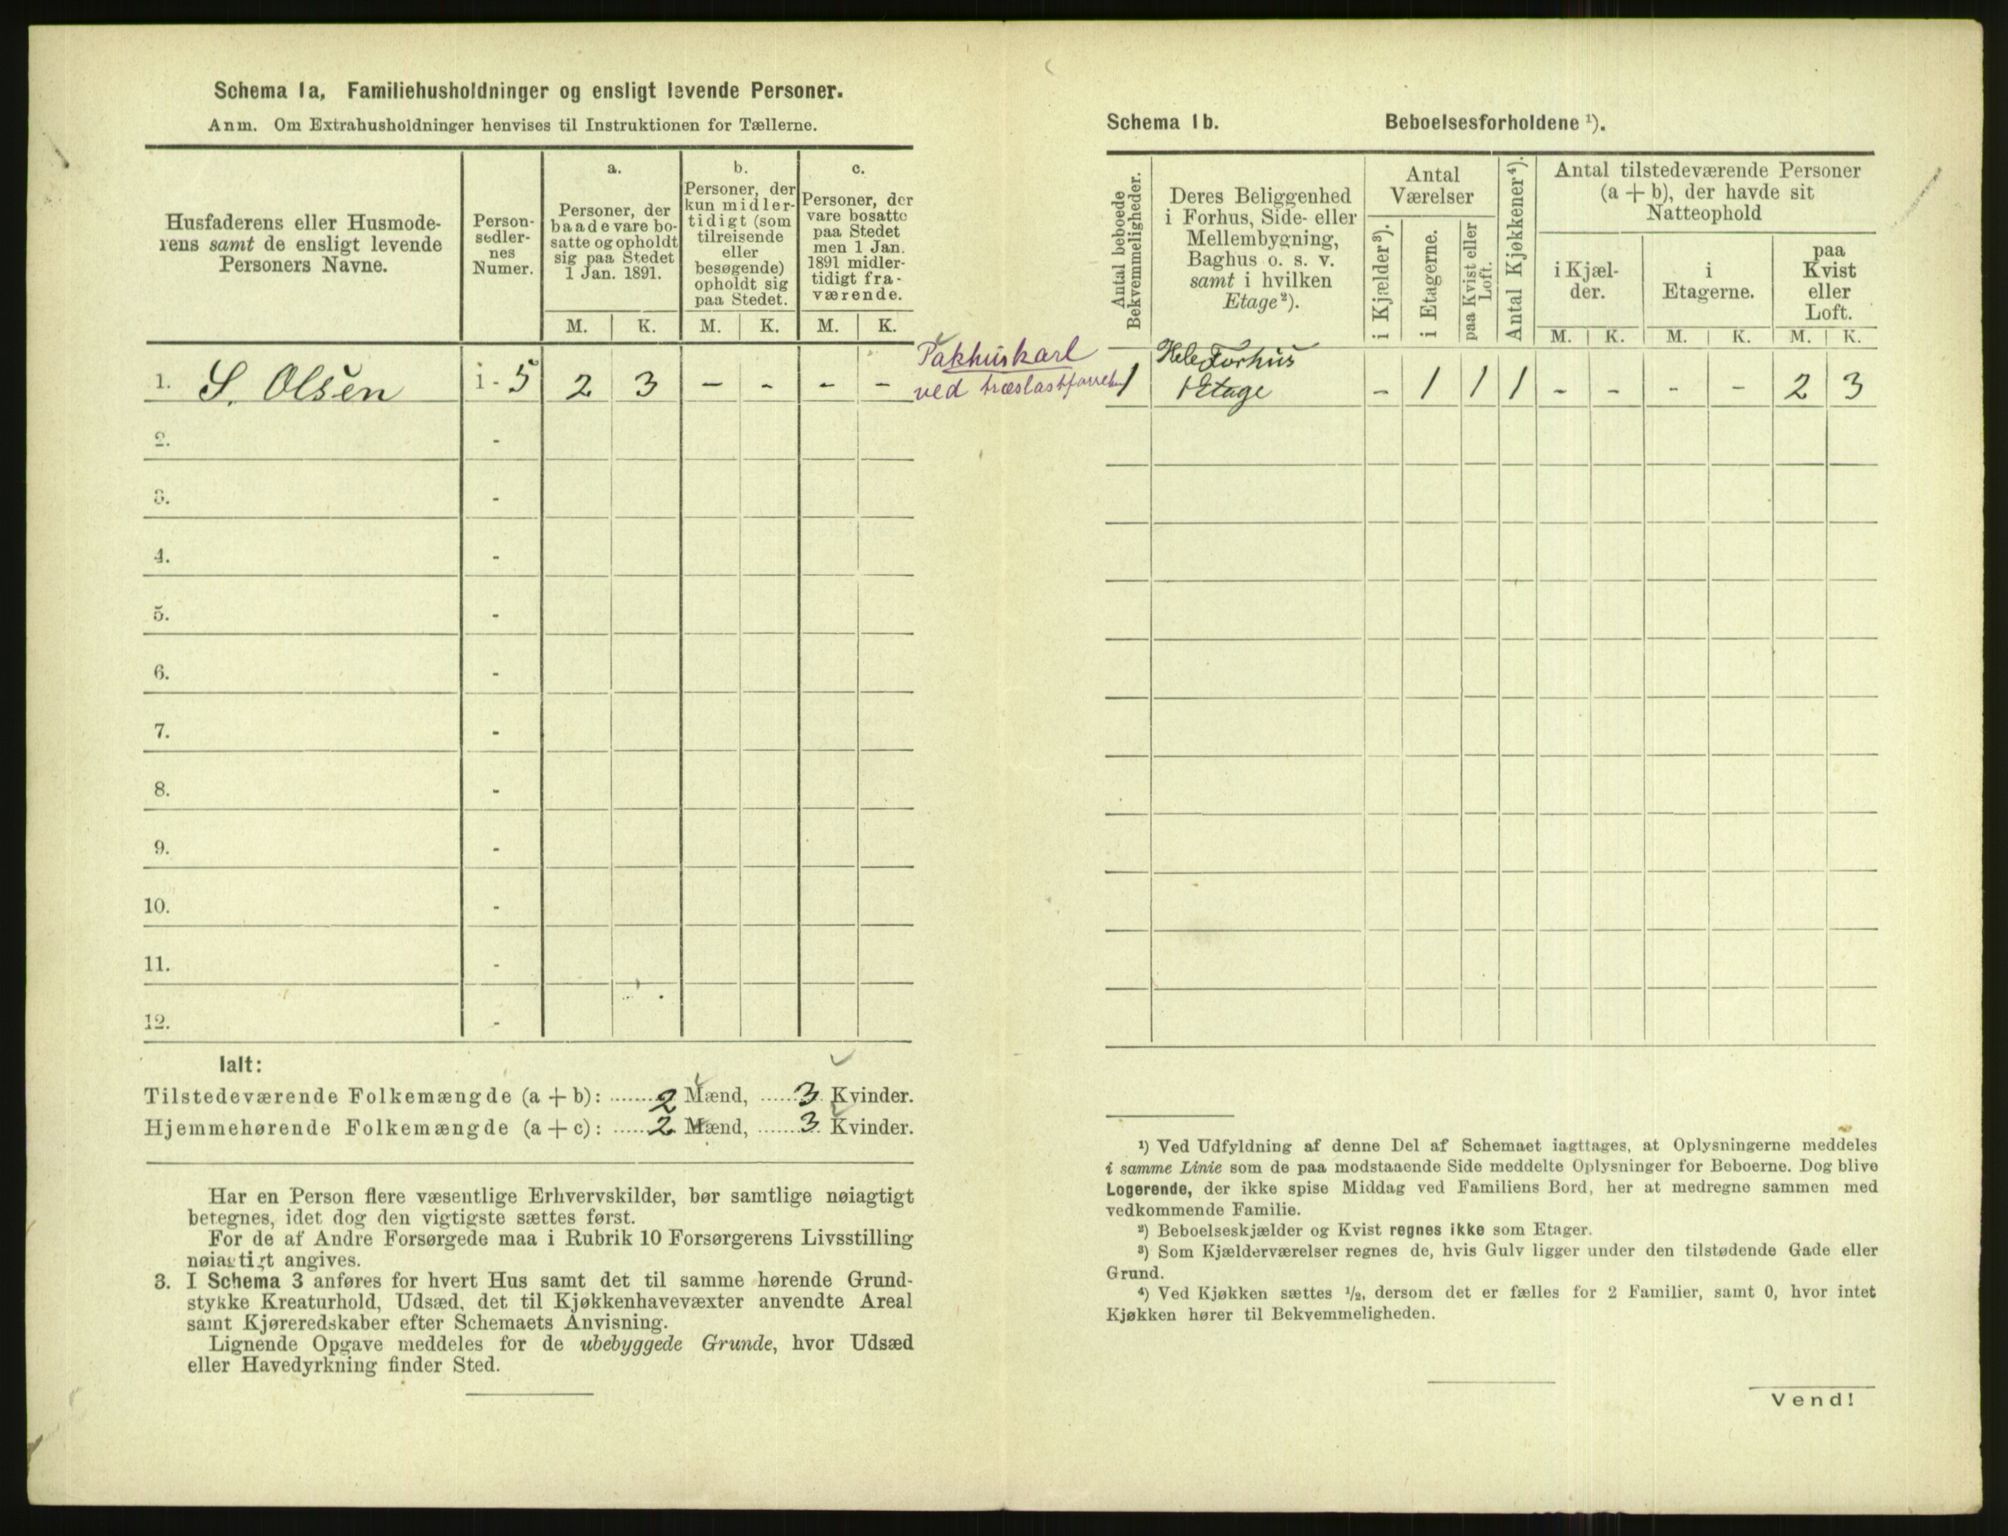 Schema 1a. Familiehusholdninger og ensligt levende Personer.
Anm. Om Extrahusholdninger henvises til Instruktionen for Tællerne.
Husfaderens eller Husmode-
rens samt de ensligt levende
Personers Navne.
Person-
sedler-
nes
Numer.
a.
Personer, der
baade vare bo-
satte og opholdt
sig paa Stedet
1 Jan. 1891.
b.
Personer, der
kun midler-
tidigt (som
tilreisende
eller
besøgende)
opholdt sig
paa Stedet.
c.
Personer, der
vare bosatte
paa Stedet
men 1 Jan.
1891 midler-
tidigt fra-
værende.
M. K. M. K. M. K.
1. S. Olsen 1 - 5 2 3 - - - -
2. -
3. -
4. -
5. -
6. -
7. -
8. -
9. -
10. -
11. -
12. -
Ialt:
Tilstedeværende Folkemængde (a + b): 2 Mænd, 3 Kvinder.
Hjemmehørende Folkemængde (a + c): 2 Mænd, 3 Kvinder.
Har en Person flere væsentlige Erhvervskilder, bør samtlige nøiagtigt
betegnes, idet dog den vigtigste sættes først.
For de af Andre Forsørgede maa i Rubrik 10 Forsørgerens Livsstilling
nøiagtigt angives.
3. I Schema 3 anføres for hvert Hus samt det til samme hørende Grund-
stykke Kreaturhold, Udsæd, det til Kjøkkenhavevæxter anvendte Areal
samt Kjøreredskaber efter Schemaets Anvisning.
Lignende Opgave meddeles for de ubebyggede Grunde, hvor Udsæd
eller Havedyrkning finder Sted.
Pakhuskarl
ved
Schema 1b. Beboelsesforholdene ¹).
Antal beboede
Bekvemmeligheder.
Deres Beliggenhed
i Forhus, Side- eller
Mellembygning,
Baghus o. s. v.
samt i hvilken
Etage²).
Antal
Værelser
i Kjælder³).
i Etagerne.
paa Kvist eller
Loft.
Antal Kjøkkener⁴).
Antal tilstedeværende Personer
(a + b), der havde sit
Natteophold
i Kjæl-
der.
i
Etagerne.
paa
Kvist
eller
Loft.
M. K. M. K. M. K.
Hele Forhus
1 1 Etage - 1 1 1 - - - - 2 3
¹) Ved Udfyldning af denne Del af Schemaet iagttages, at Oplysningerne meddeles
i samme Linie som de paa modstaaende Side meddelte Oplysninger for Beboerne. Dog blive
Logerende, der ikke spise Middag ved Familiens Bord, her at medregne sammen med
vedkommende Familie.
²) Beboelseskjælder og Kvist regnes ikke som Etager.
³) Som Kjælderværelser regnes de, hvis Gulv ligger under den tilstødende Gade eller
Grund.
⁴) Ved Kjøkken sættes ½, dersom det er fælles for 2 Familier, samt 0, hvor intet
Kjøkken hører til Bekvemmeligheden.
Vend!